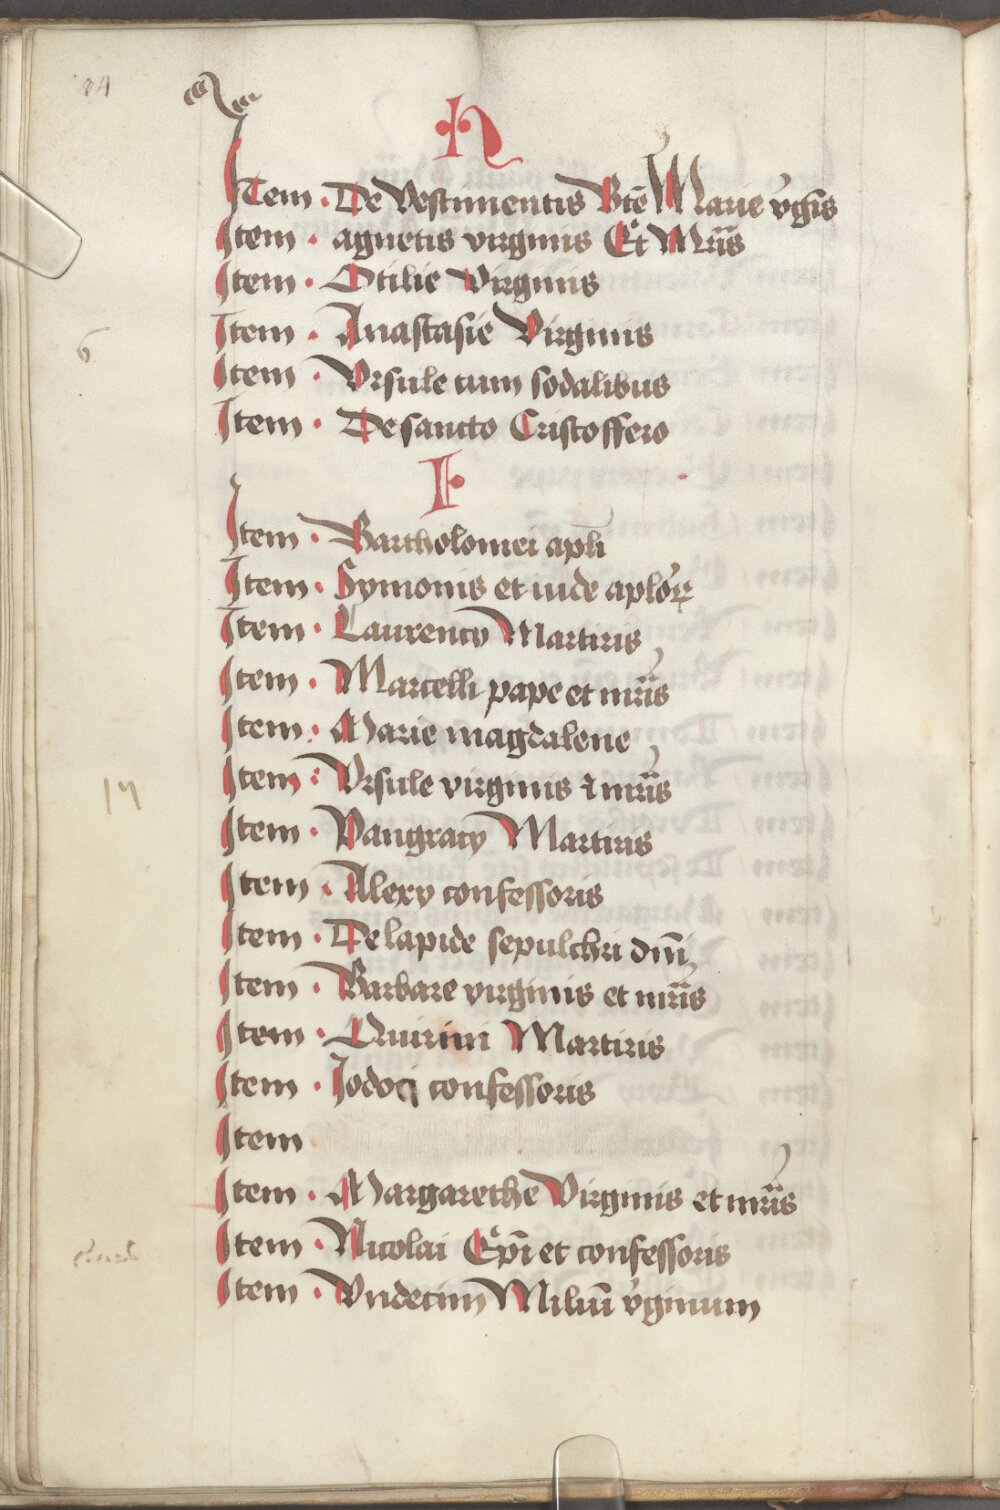 H
Item · De Vestimentis Btē Marie v̄gīs
Item · agnetis virginis Et Mrīs
Item · Otilie Virginis
Item · Anastasie Virginis
6
Item · Vrsule cum sodalibus
Item · De sancto Cristoffero
I
Item · Bartholomei apli
Item · Symonis et iude aplorꝝ
Item · Laurency Martiris
Item · Marcelli pape et mrīs
Item · Marie magdalene
Item · Vrsule virginis ⁊ mrīs
17
Item · Pangracy Martiris
Item · Alexy confessoris
Item · De lapide sepulchri dnī
Item · Barbare virginis et mrīs
Item · Quirini Martiris
Item · Jodoci confessoris
Item
Item · Margarethe Virginis et mrīs
Item · Nicolai Epī et confessoris
Item · Vndecim Miliū v̄ginum